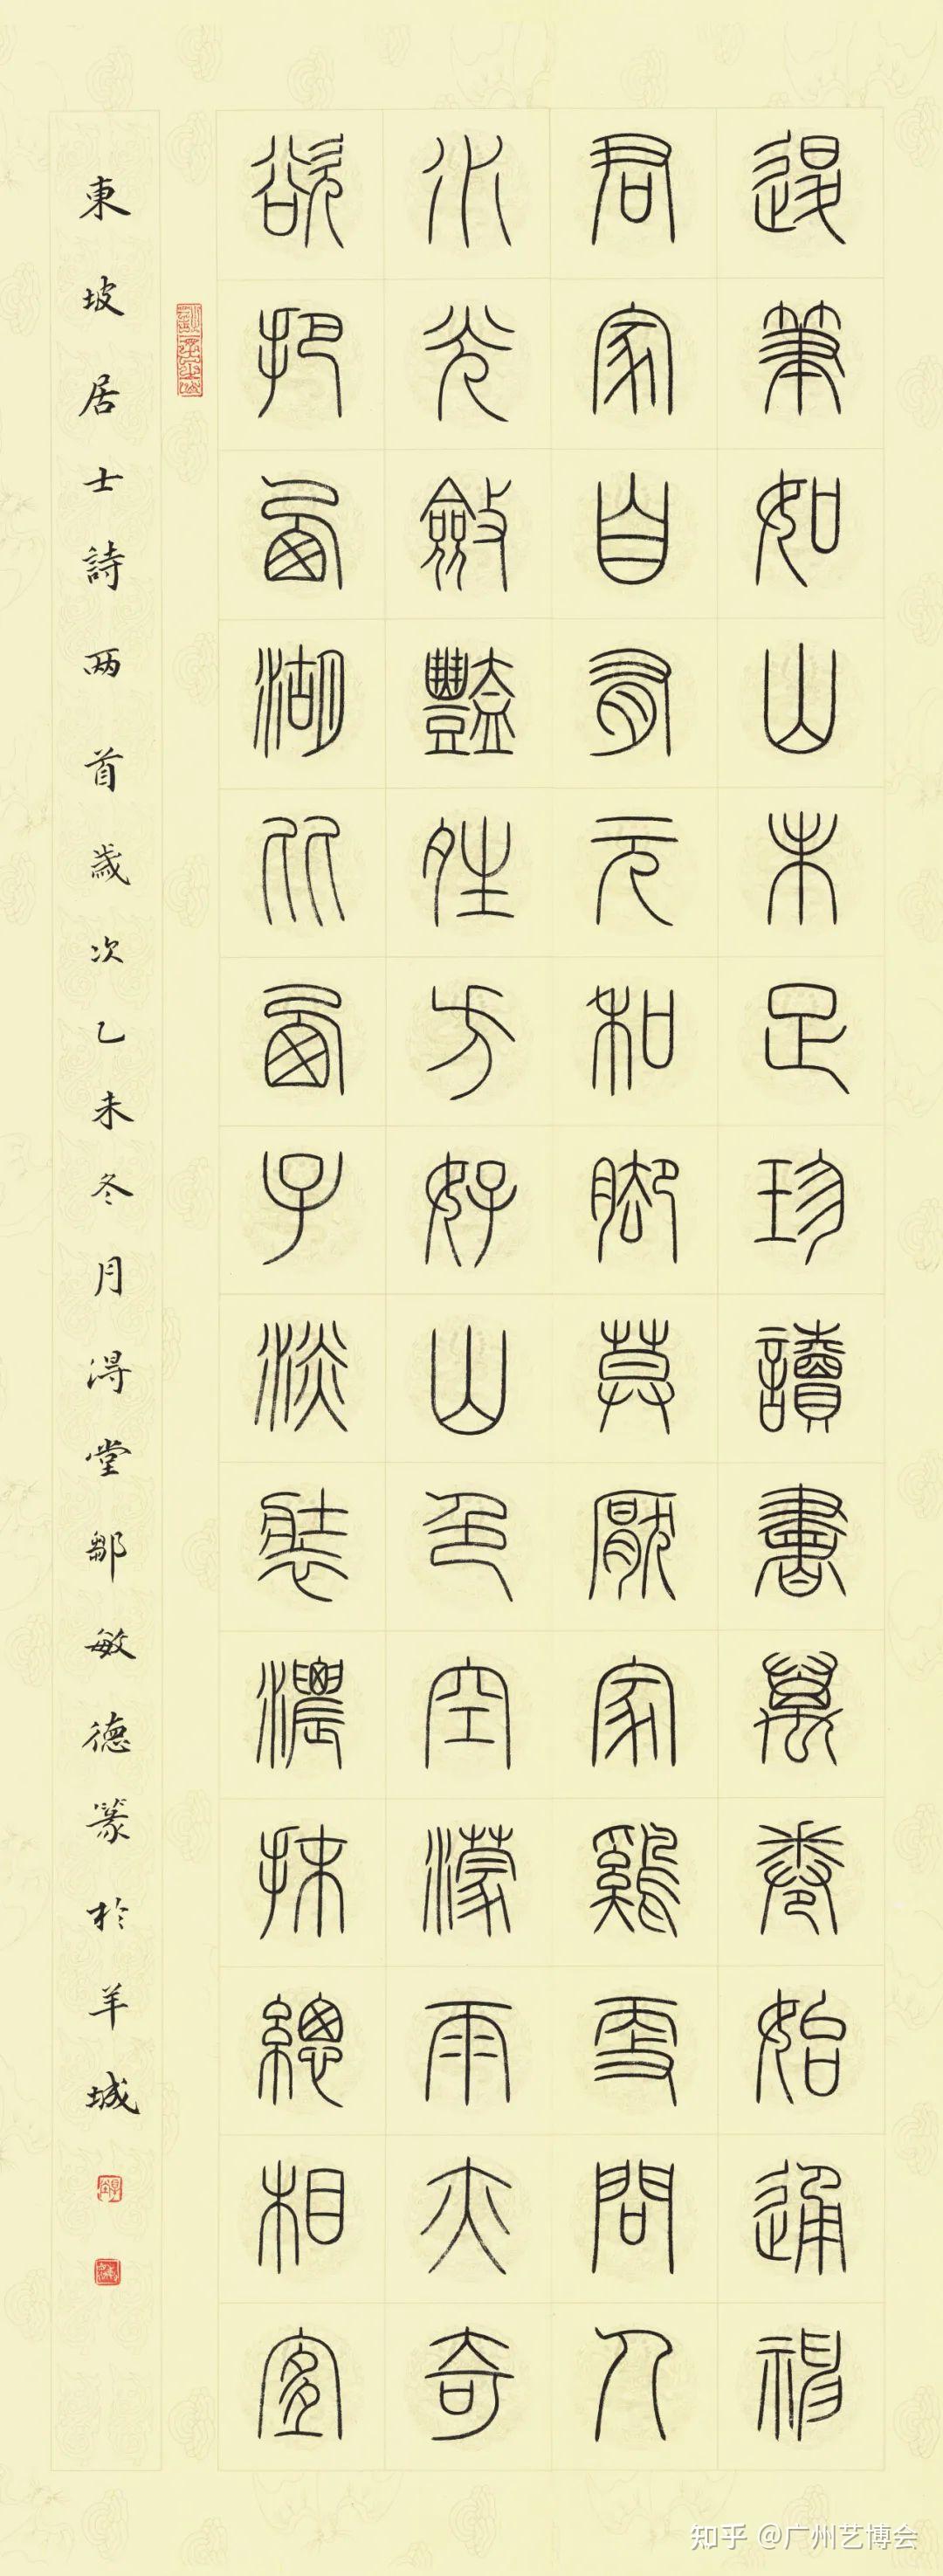 退筆如山未足珍讀書萬卷始通神
君家自有元和腳莫厭家雞更問人
水光斂豔夝方好山色空濛雨亦奇
欲把西湖比西子淡裝濃抹總相宜
東坡居士詩两首歲次乙未冬月淂堂鄒敏德篆於羊城
知乎 @广州艺博会